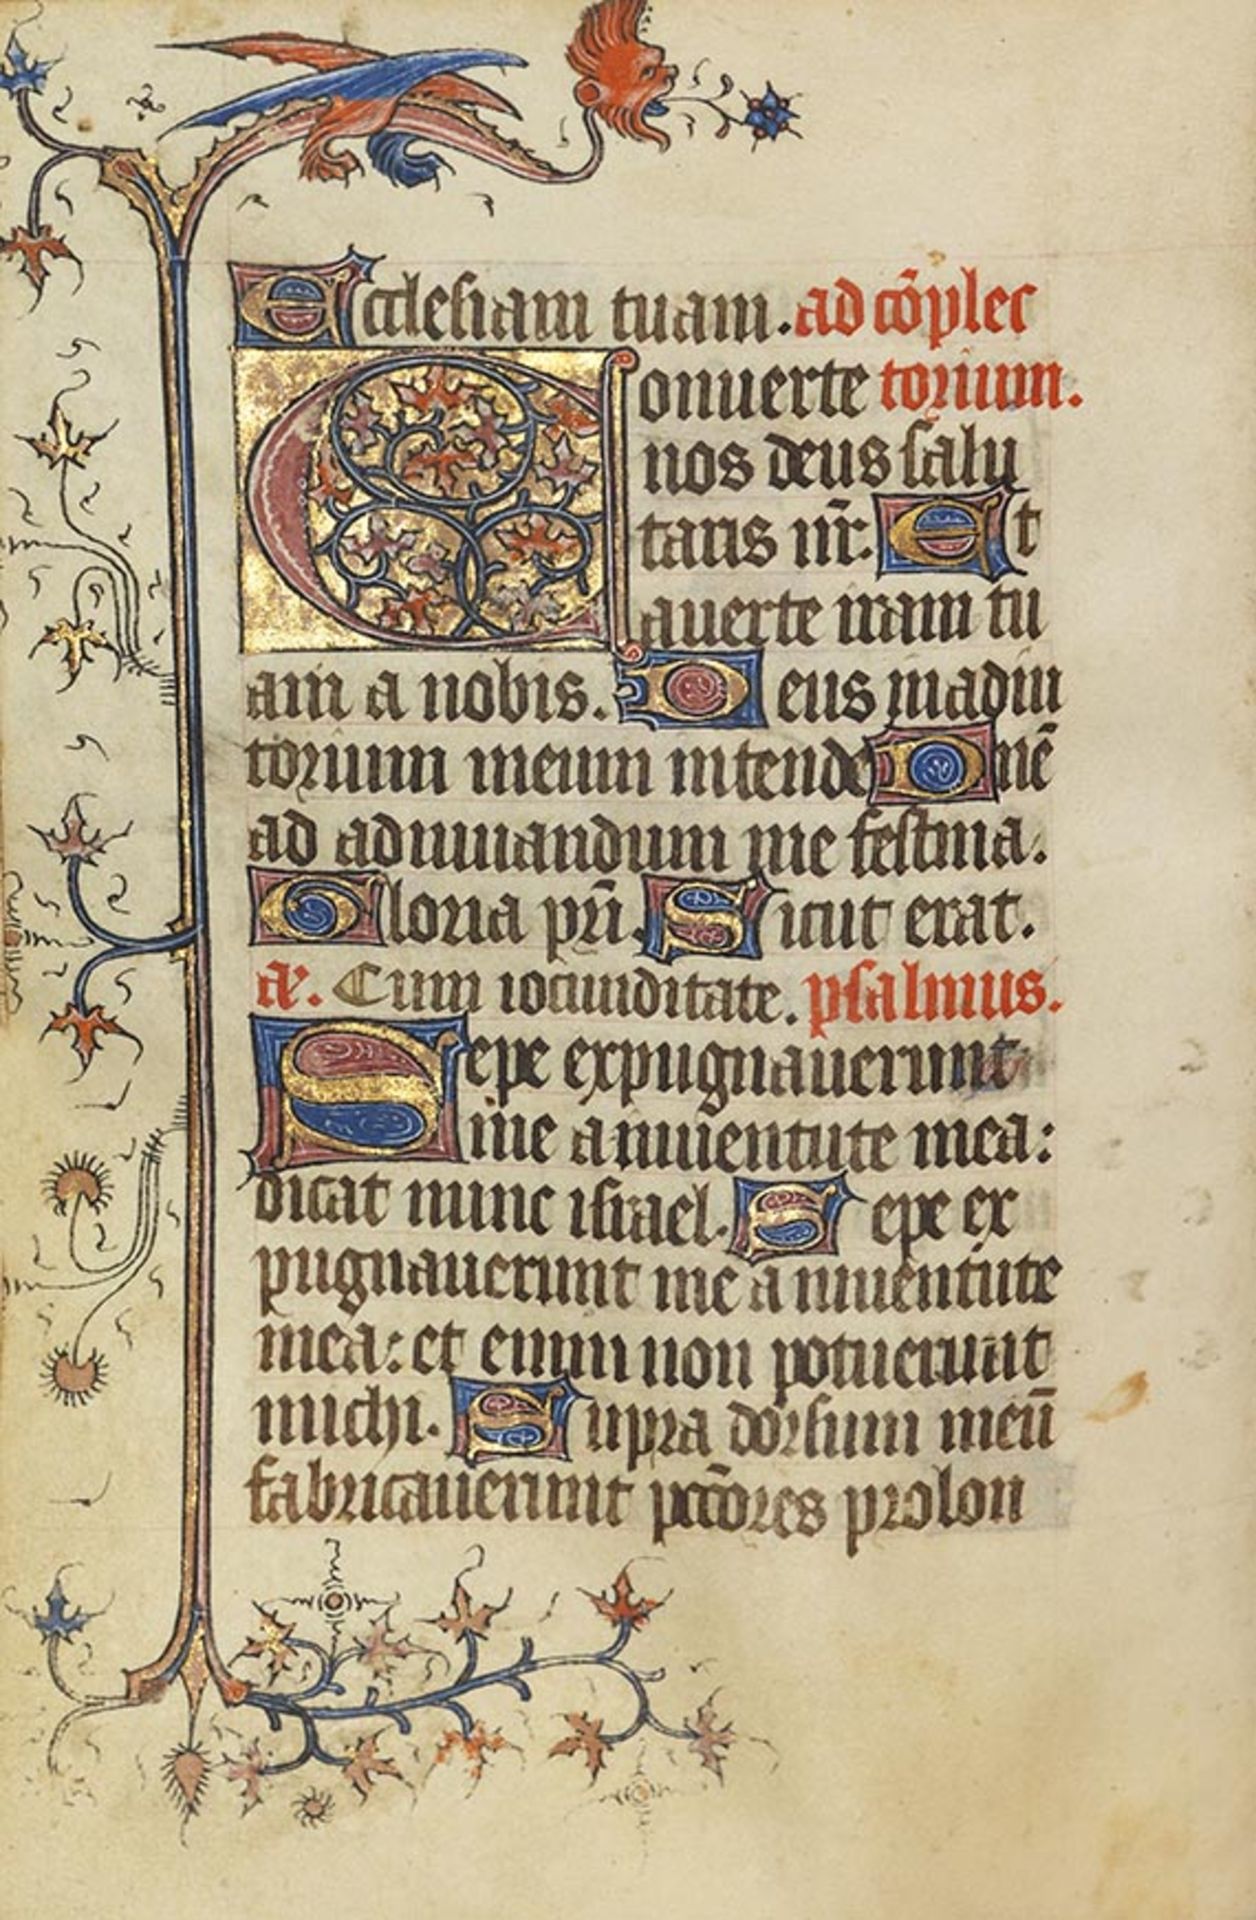 Ecclesiam tuam. ad cōplec
Conuerte torium.
nos deus salu
taris nr̄. Et
auerte iram tu
am a nobis. Deus in adiu
torium meum intende Dnē
ad adiuuandum me festina.
Gloria pri̅. Sicut erat.
a̅. Cum iocunditate. psalmus.
Sepe expugnauerunt
me a iuuentute mea:
dicat nunc israel. Sepe ex
pugnauerunt me a iuuentute
mea: et enim non potuerunt
michi. Supra dorsum meū
fabricauerunt pctōres prolon